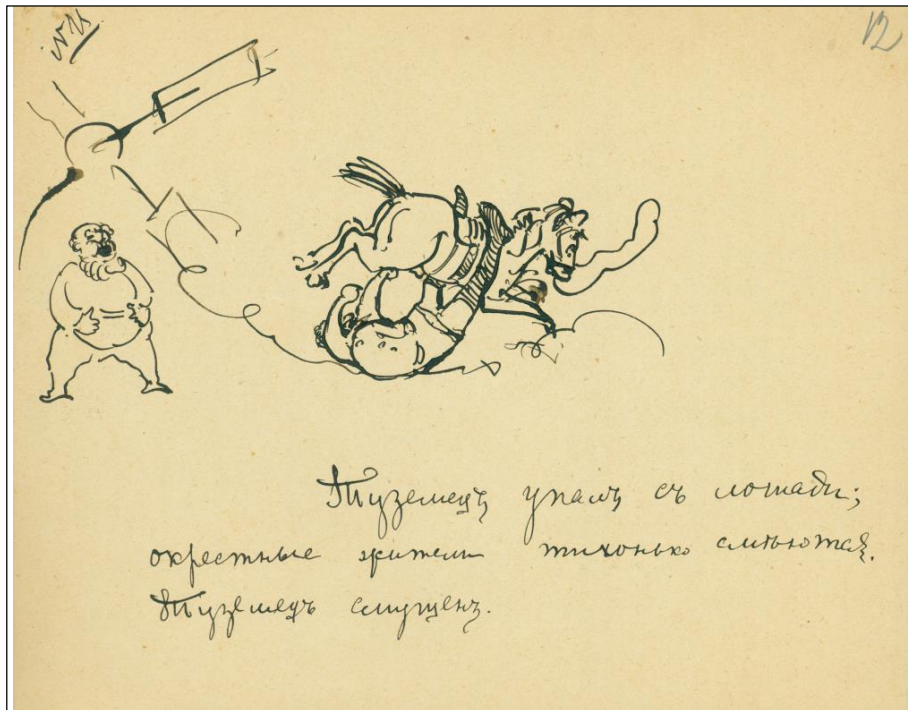 12
Туземецъ упалъ съ лошади;
окрестные жители тихонько смѣются.
Туземецъ смущенъ.